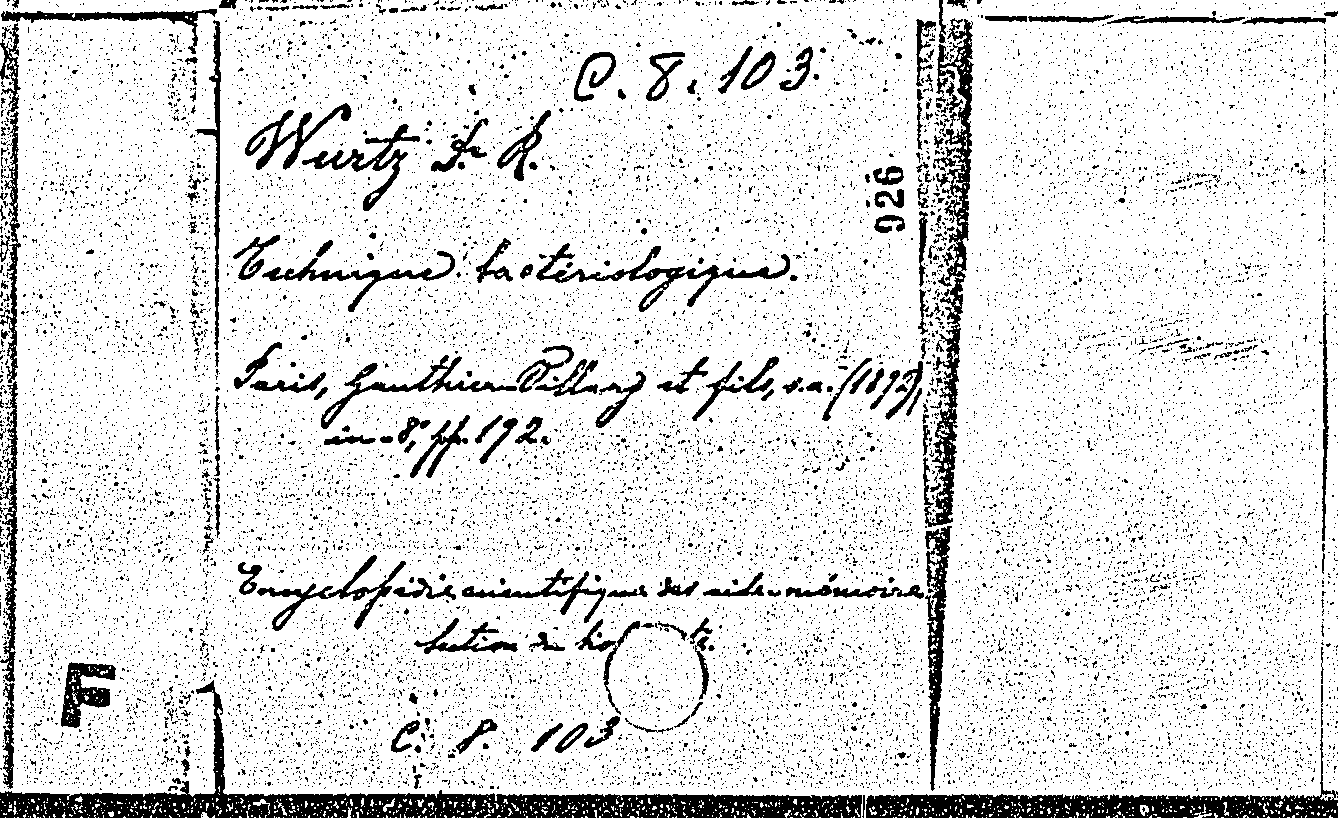 C. 8. 103.
Wurtz Dr R.
926
Technique bactériologique.
Paris, Gauthier-Villars et fils, s.a. (1892),
in-8°, pp. 192.
Encyclopédie scientifique des aide-mémoire
Section du
C. 8. 103
F